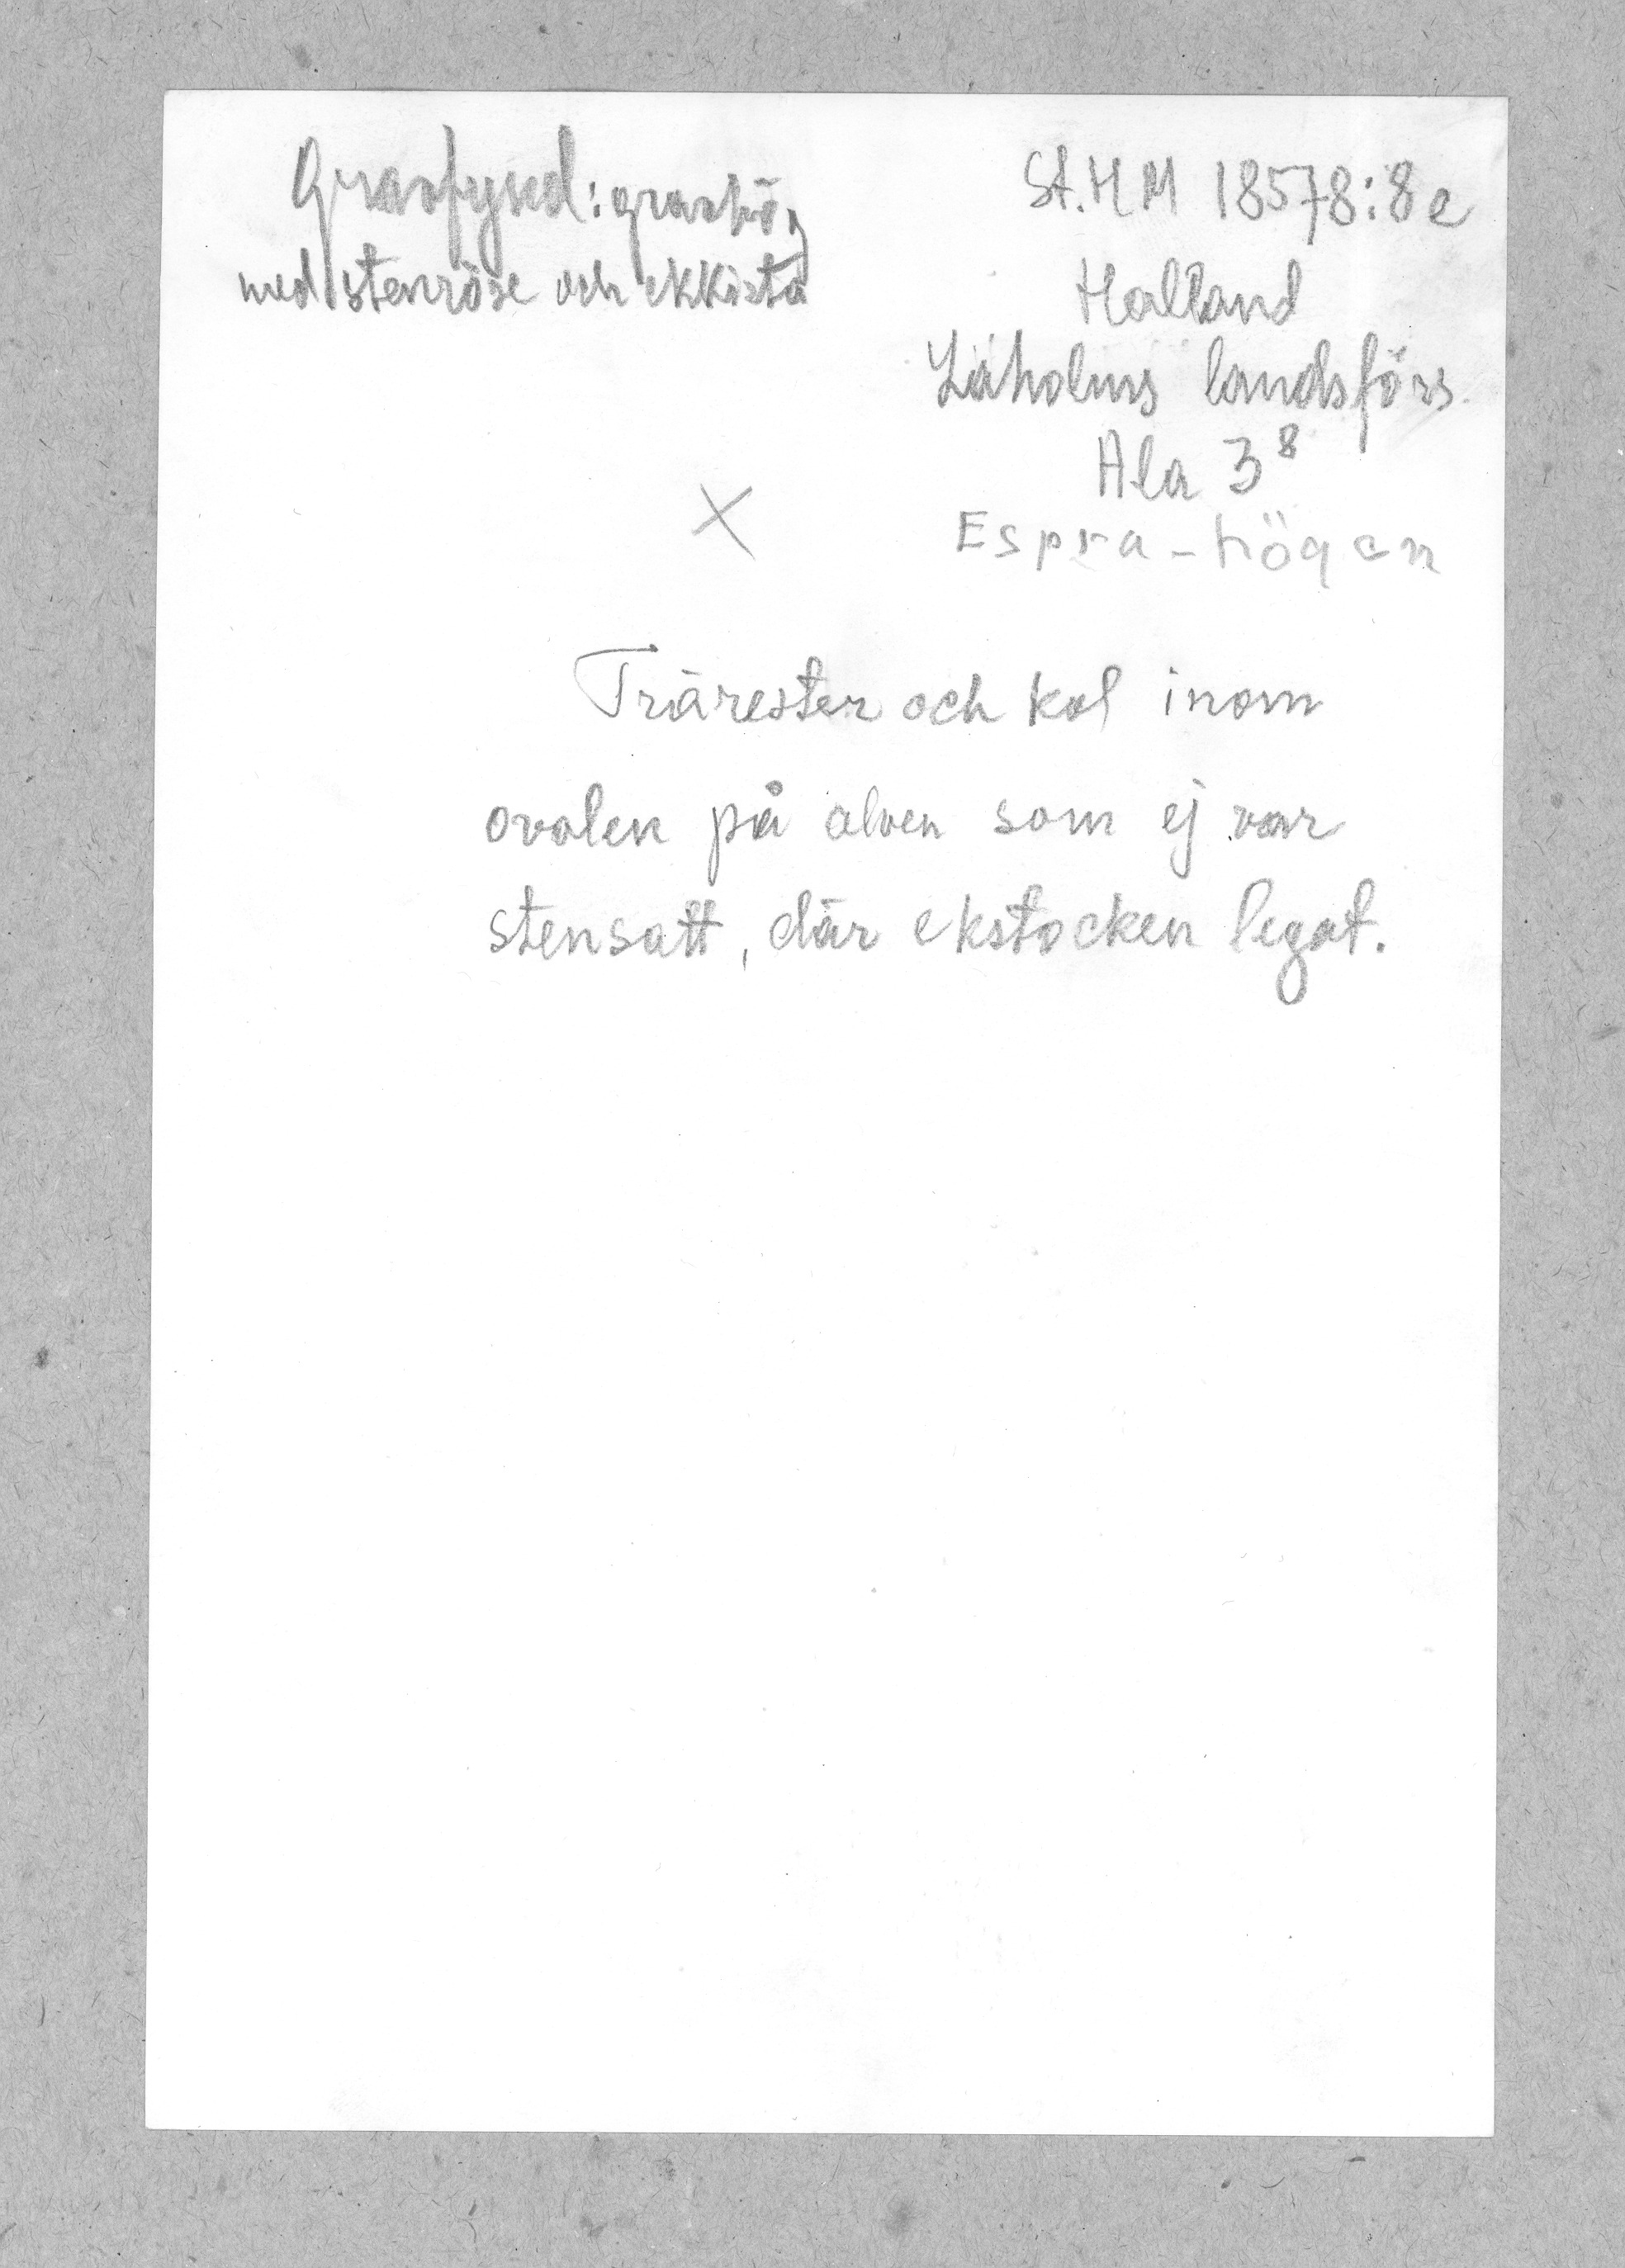 Gravfynd: gravhög
med stenröse och ekkista
St.H M 18578:8e
Halland
Laholms landsförs.
Ala 3⁸
X
Espra-högen
Trärester och kol inom
ovalen på alven som ej var
stensatt, där ekstocken legat.